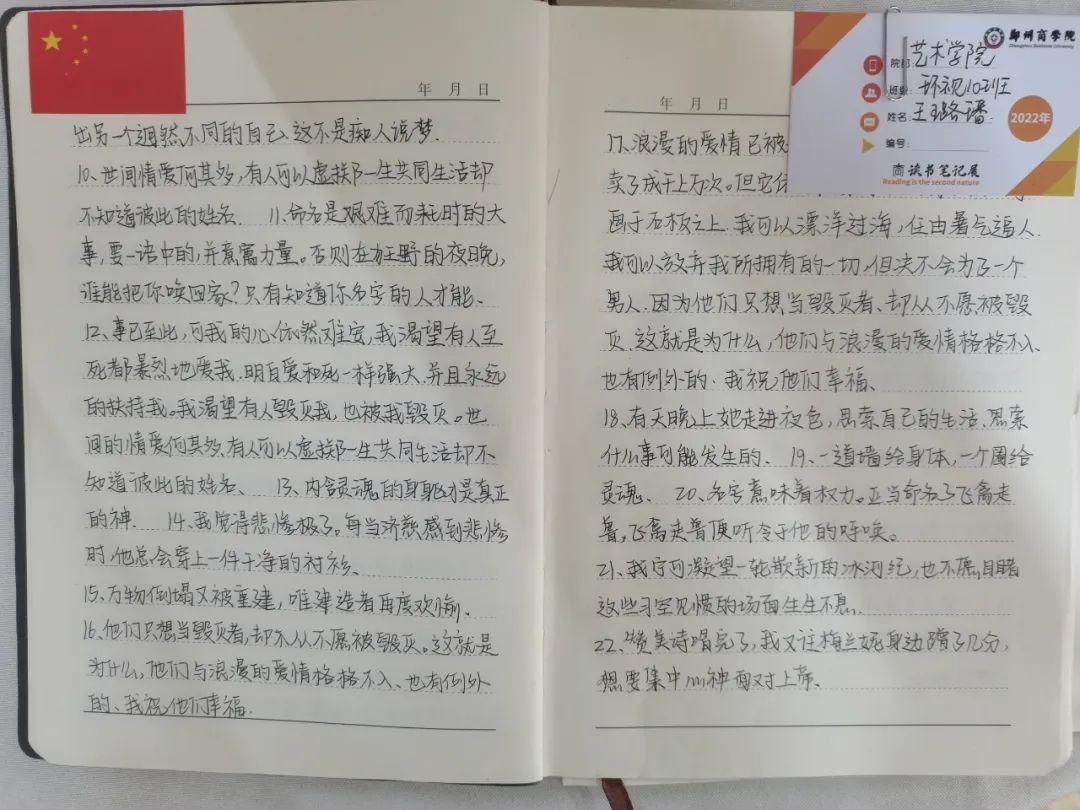 年 月 日
出另一个迥然不同的自己、这不是痴人说梦.
10、世间情爱何其多,有人可以虚掷一生共同生活却
不知道彼此的姓名. 11.命名是艰难而耗时的大
事,要一语中的,并意寓力量。否则在狂野的夜晚,
谁能把你唤回家?只有知道你名字的人才能、
12、事已至此,可我的心依然难安,我渴望有人至
死都暴烈地爱我.明白爱和死一样强大.并且永远
的扶持我。我渴望有人毁灭我,也被我毁灭。世
间的情爱何其多,有人可以虚掷一生共同生活却不
知道彼此的姓名、 13、内含灵魂的身躯才是真正
的神. 14、我觉得悲惨极了。每当济慈感到悲惨
时,他总会穿上一件干净的衬衫、
15、万物倒塌又被重建,唯建造者再度欢愉、
16、他们只想当毁灭者,却从不愿被毁灭。这就是
为什么,他们与浪漫的爱情格格不入、也有例外
的、我祝他们幸福.
年 月 日
17、浪漫的爱情已被
卖了成千上万次。但它
画于石板之上.我可以漂洋过海,任由暑气逼人.
我可以放弃我所拥有的一切,但决不会为了一个
男人.因为他们只想当毁灭者、却从不愿被毁
灭.这就是为什么,他们与浪漫的爱情格格不入、
也有例外的.我祝他们幸福、
18、有天晚上她走进夜色,思索自己的生活、思索
什么事可能发生的、 19、一道墙给身体,一个圈给
灵魂、 20、名字意味着权力。亚当命名了飞禽走
兽,飞禽走兽便听令于他的呼唤。
21、我宁可凝望一轮崭新的冰河纪,也不愿目睹
这些习空见惯的场面生生不息.
22、赞美诗唱完了,我又往梅兰妮身边蹭了几分,
想要集中心神面对上帝、
郑州商学院
Zhengzhou Business University
院部:艺术学院
班级:环视10班
姓名:王璐璠
编号:
2022年
商 读书笔记展
Reading is the second nature